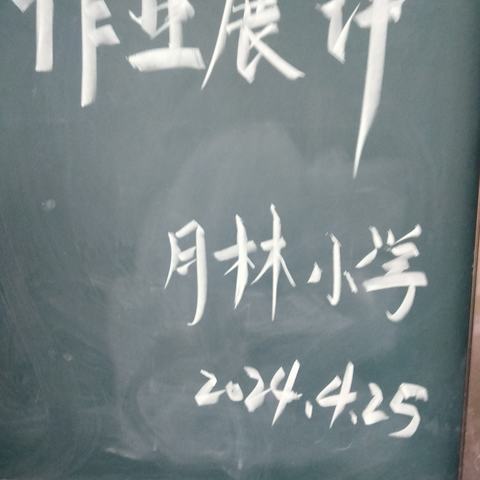 作业展评
月林小学
2024.4.25